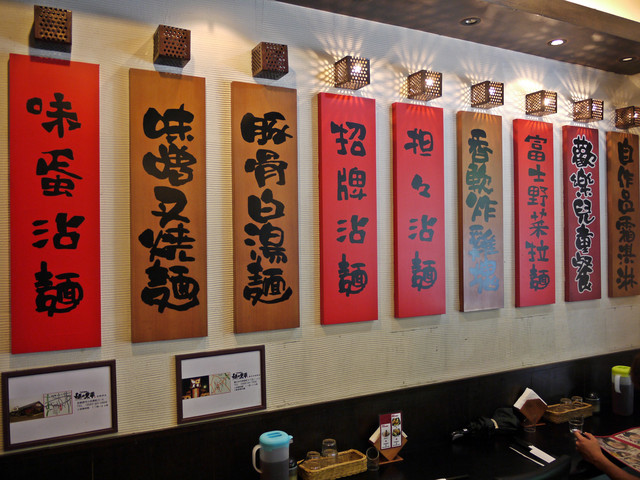 味蛋沾麵
味噌叉燒麵
豚骨白湯麵
招牌沾麵
担々沾麵
香軟炸雞塊
富士野菜拉麵
歡樂兒童餐
自作品霜淇淋